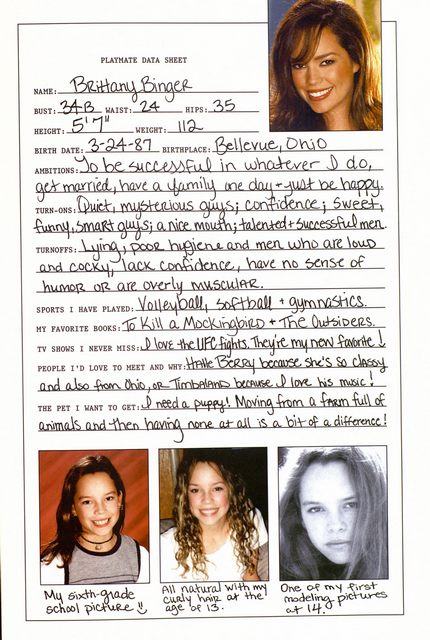 PLAYMATE DATA SHEET
NAME: Brittany Binger
BUST: 34B WAIST: 24 HIPS: 35
HEIGHT: 5'7" WEIGHT: 112
BIRTH DATE: 3-24-87 BIRTHPLACE: Bellevue, Ohio
AMBITIONS: To be successful in whatever I do,
get married, have a family one day + just be happy.
TURN-ONS: Quiet, mysterious guys; confidence; sweet,
funny, smart guys; a nice mouth; talented + successful men.
TURNOFFS: Lying, poor hygiene and men who are loud
and cocky, lack confidence, have no sense of
humor or are overly muscular.
SPORTS I HAVE PLAYED: Volleyball, softball + gymnastics.
MY FAVORITE BOOKS: To Kill a Mockingbird + The Outsiders.
TV SHOWS I NEVER MISS: I love the UFC fights. They're my new favorite!
PEOPLE I'D LOVE TO MEET AND WHY: Halle Berry because she's so classy
and also from Ohio, or Timbaland because I love his music!
THE PET I WANT TO GET: I need a puppy! Moving from a farm full of
animals and then having none at all is a bit of a difference!
My sixth-grade
school picture
All natural with my
curly hair at the
age of 13.
One of my first
modeling pictures
at 14.